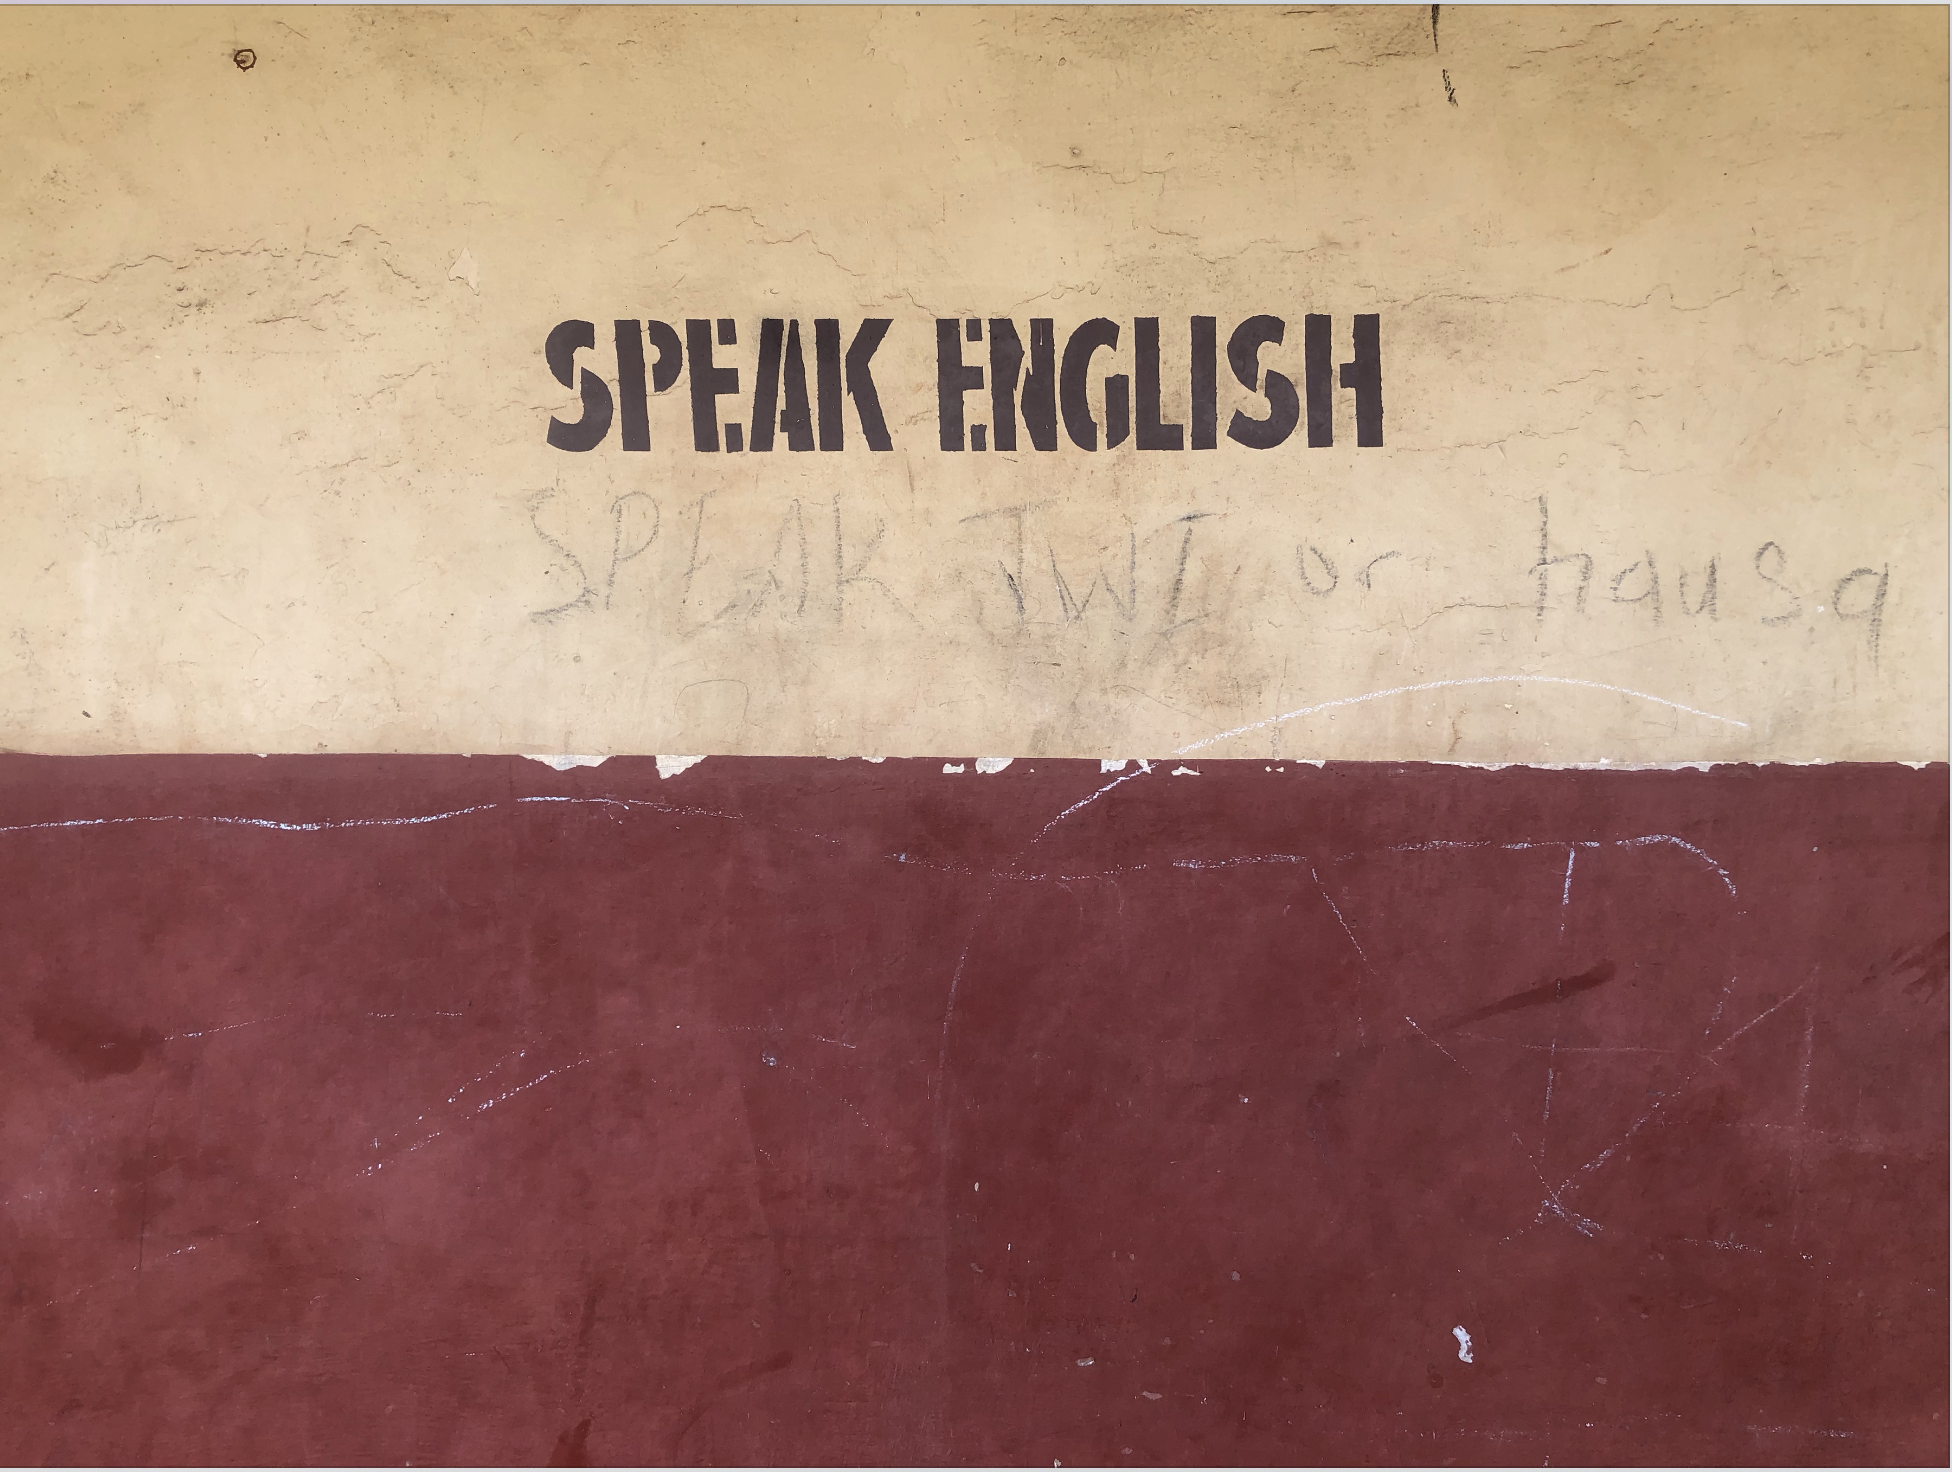 SPEAK ENGLISH
SPEAK TWI or hausa